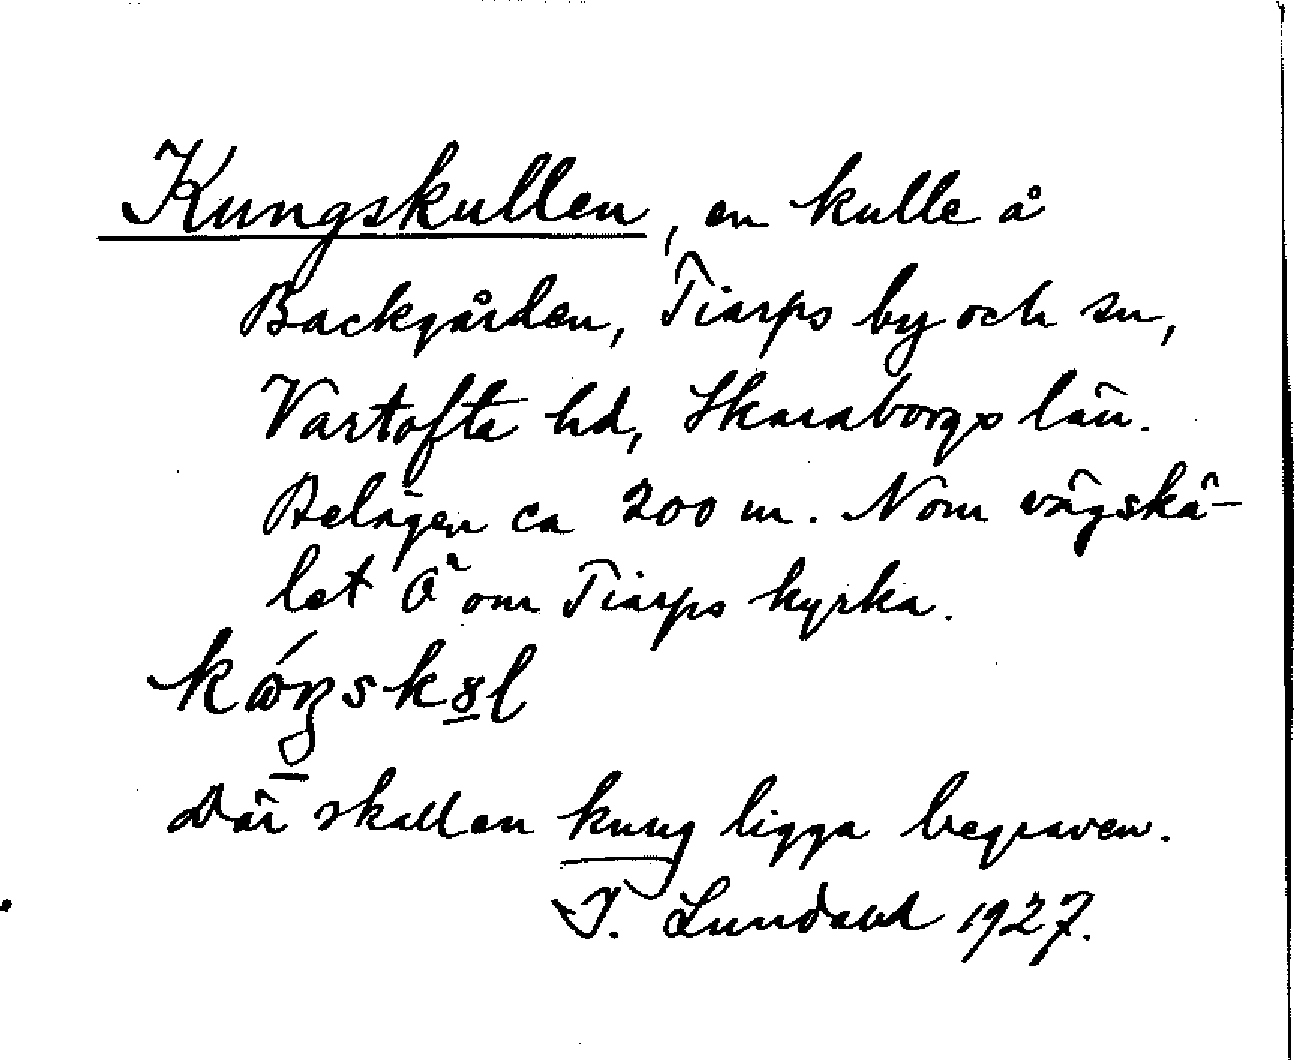 Kungskullen, en kulle å
Backgården, Tiarps by och sn,
Vartofta hd, Skaraborgs län.
Belägen ca 200 m. N om vägskä-
let Ö om Tiarps kyrka.
Där skall en kung ligga begraven.
I. Lundahl 1927.